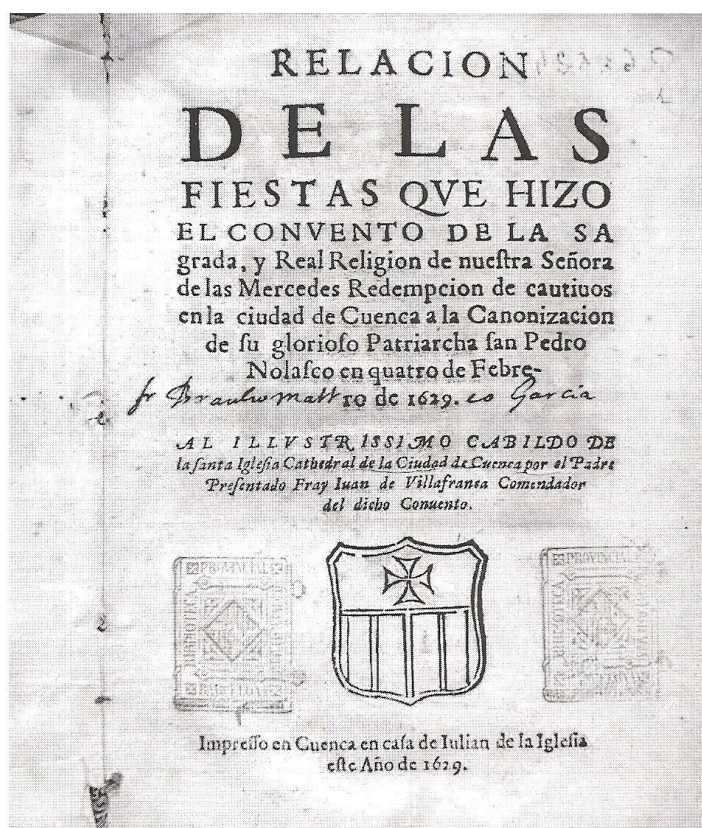 RELACION
DE LAS
FIESTAS QVE HIZO
EL CONVENTO DE LA SA
grada, y Real Religion de nueſtra Señora
de las Mercedes Redempcion de cautiuos
en la ciudad de Cuenca a la Canonizacion
de ſu glorioſo Patriarcha ſan Pedro
Nolaſco en quatro de Febre-
fr Braulio Matt ro de 1629. eo Garcia
AL ILLVSTRISSIMO CABILDO DE
la ſanta Igleſia Cathedral de la Ciudad de Cuenca por el Padre
Preſentado Fray Iuan de Villafranca Comendador
del dicho Conuento.
BIBLIOTECA PROVINCIAL BARCELONA
BIBLIOTECA PROVINCIAL
Impreſſo en Cuenca en caſa de Iulian de la Igleſia
eſte Año de 1629.